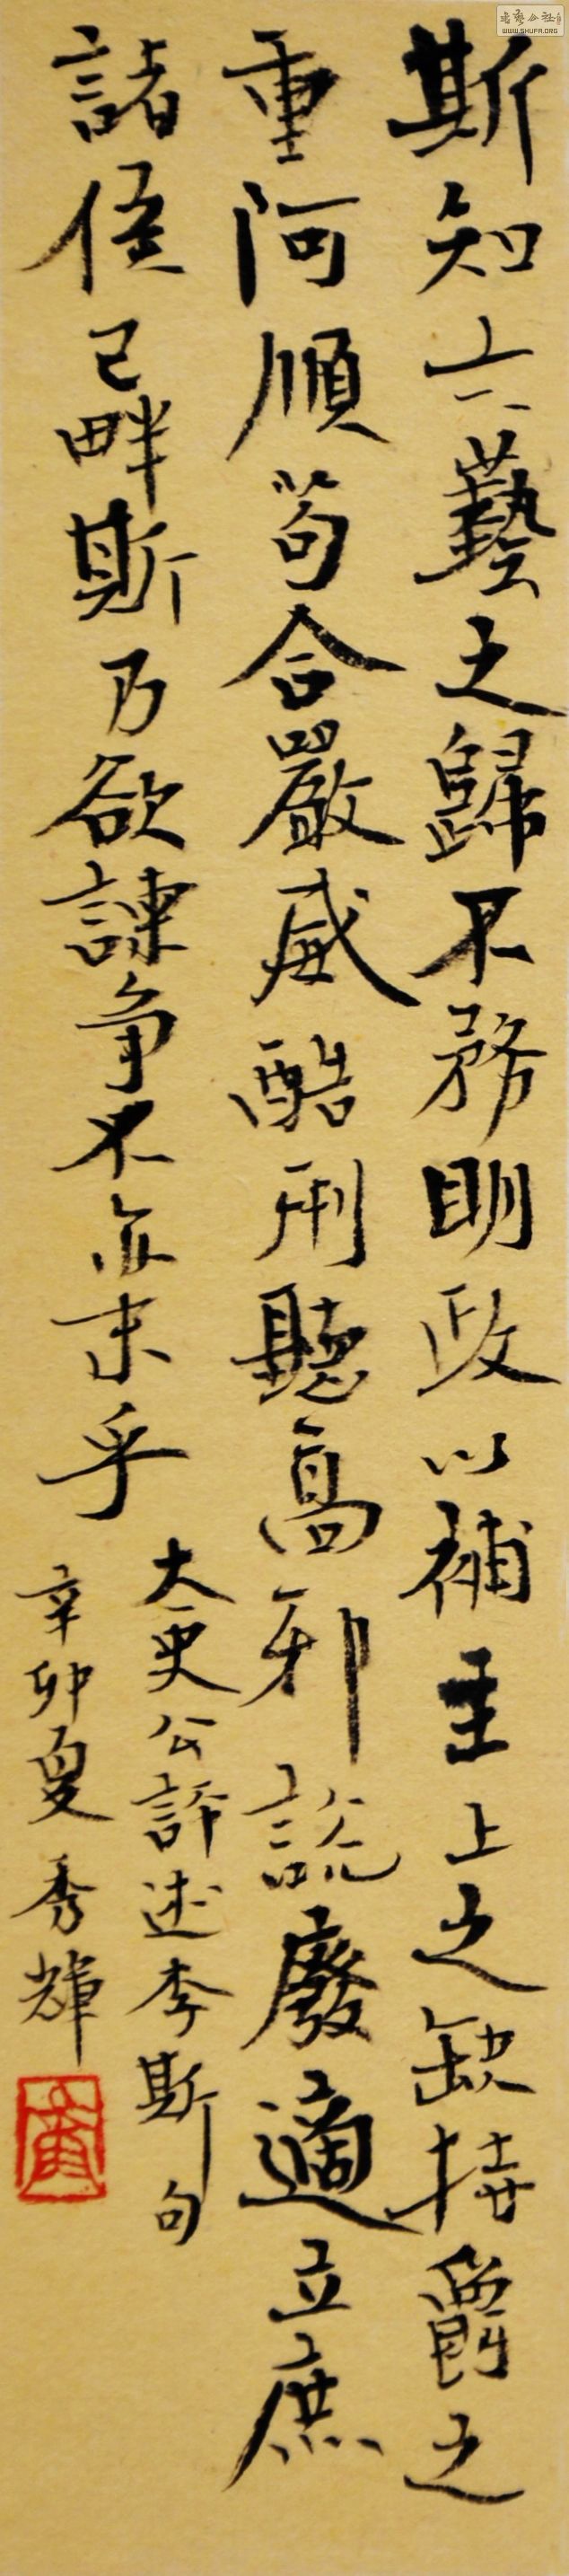 斯知六藝之歸不務明政以補主上之缺持爵之
重阿順苟合嚴威酷刑聽高邪說廢適立庶
諸侯已畔斯乃欲諫爭不亦末乎
太史公評述李斯句
辛卯夏秀輝
書藝公社
WWW.SHUFA.ORG